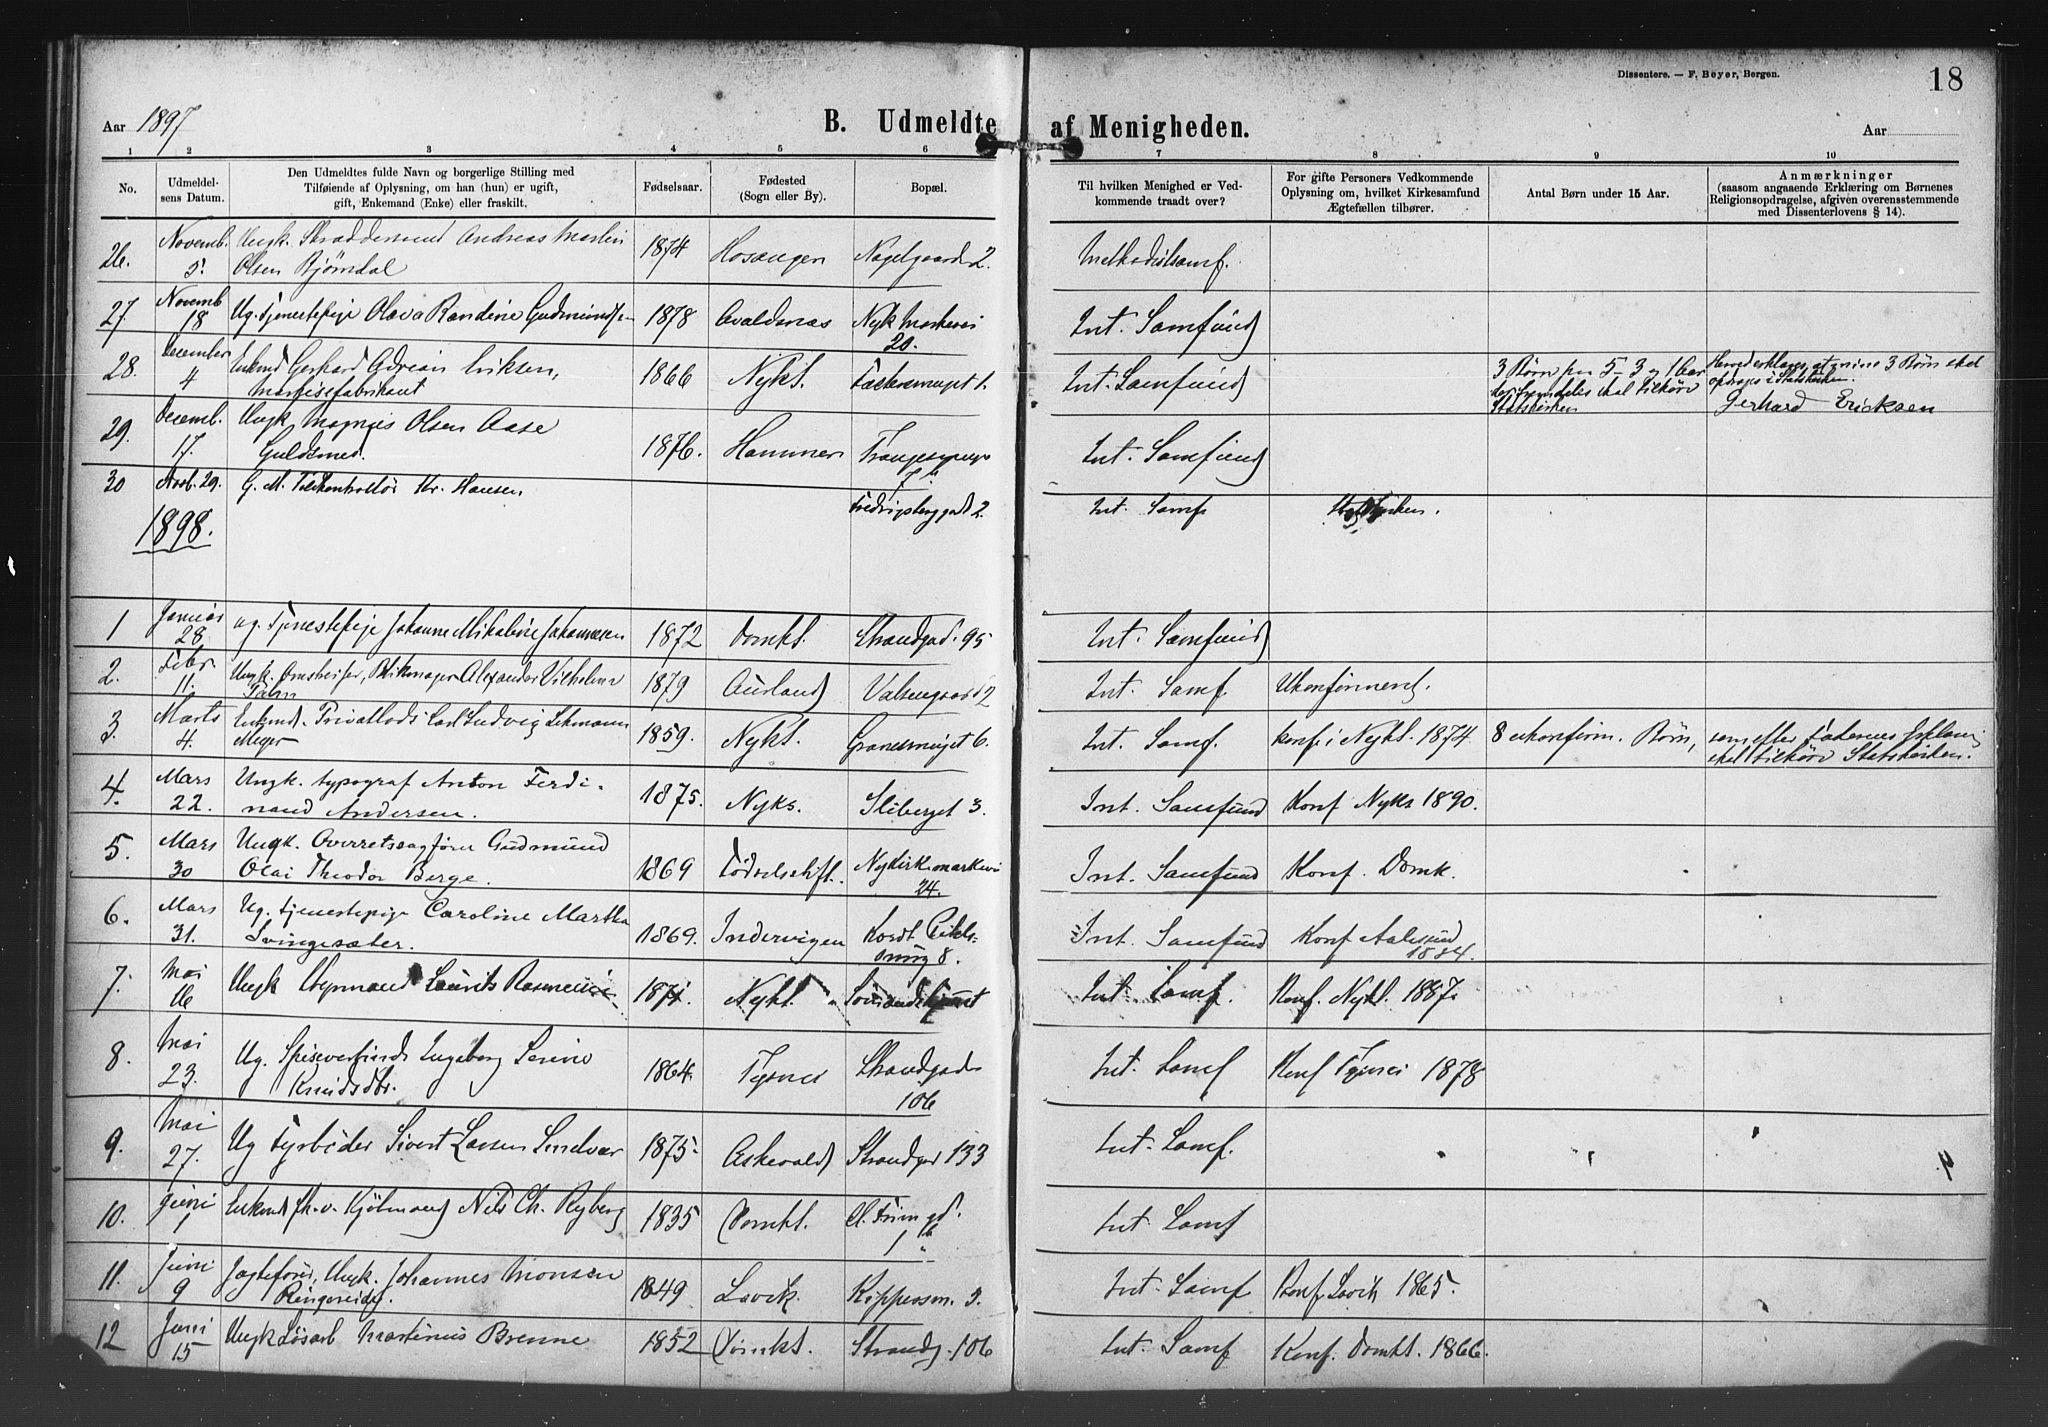 Dissentere. — F. Beyer, Bergen.
18
Aar 1897
B. Udmeldte af Menigheden.
Aar
1 2 3 4 5 6 7 8 9 10
No.
Udmeldel-
sens Datum.
Den Udmeldtes fulde Navn og borgerlige Stilling med
Tilføiende af Oplysning, om han (hun) er ugift,
gift, Enkemand (Enke) eller fraskilt.
Fødselsaar.
Fødested
(Sogn eller By).
Bopæl.
Til hvilken Menighed er Ved-
kommende traadt over?
For gifte Personers Vedkommende
Oplysning om, hvilket Kirkesamfund
Ægtefællen tilhører.
Antal Børn under 15 Aar.
Anmærkninger
(saasom angaaende Erklæring om Børnenes
Religionsopdragelse, afgiven overensstemmende
med Dissenterlovens § 14).
26. Novemb. 5. Ungk. Skræddersvend Andreas Martin
Olsen Bjørndal 1874 Hosanger Nagelgaard 2. Methodistsamf.
27. Novemb 18 Ug. Tjenestepige Olava Randine Gudmundsen 1878 Avaldsnæs Nyk Markevei
20. Int. Samfund
28. December 4 Enkmd Gerhard Adrian Eriksen,
Markisefabrikant 1866 Nykt. 1. Int. Samfund 3 Børn paa 5-3 og 1 aar
skal tilhøre
Statskirken
3 Børn skal
opdrages i Statskirken.
Gerhard Ericksen
29. Decemb. 17. Ungk Magnus Olsen Aase
Guldsmed. 1876. Hammer 7. Int. Samfund
30 Novb. 29. G. M. Toldkontrollør Kr. Hansen Fredriksberggade 2. Int. Samf Statskirken.
1898.
1 Januar 28. ug. Tjenestepige Johanne Mikaline Johannesen 1872 Domkt. Strandgad. 95 Int. Samfund
2. Febr 11. Ungk. Blikmager Alexander Vilhelm
1879 Aurland 2 Int. Samf. Ukonfirmeret.
3. Marts 4. Enkemd. Carl Ludvig Lehmann
Meyer 1859. Nykt. Granesmuget 6. Int. Samf. konf. i Nykt. 1874 8 ukonfirm. Børn, som efter Faderens
skal tilhøre Statskirken.
4. Mars 22. Ungk. typograf Anton Ferdi-
nand Andersen. 1875. Nyks. Sliberget 3. Int. Samfund Konf Nyks 1890.
5. Mars 30 Ungk. Overretssagfører Gudmund
Olai Theodor Berge. 1869 Fødselsstift. Nykirkemarkevei
24. Int. Samfund Konf. Domk.
6. Mars 31. Ug. tjenestepige Caroline Martha
Svingesæter. 1869. Indervigen 8. Int. Samfund Konf Aalesund
1884.
7. Mai 16 Ungk Laurits Rasmussen 1871. Nykt. Int Samf. Konf. Nykt. 1887.
8. Mai 23. Ug. Ingeborg Serine
Knudsdtr. 1864. Tysnes Strandgade
106 Int. Samf Konf Tysnes 1878
9. Mai 27. Ug Fyrbøder Sivert Larsen 1875 Askevold Strandgad 133 Int. Samf.
10. Juni 1 Enkemd fh.v. Kjøbmand Nils Ch. Ryberg 1835 Domkt. 1 Int Samf
11. Juni 9 Jagtefører, Ungk. Johannes Monsen
Ringereide. 1849 Lavik. 3. Int. Samf Konf Lavik 1865.
12 Juni 15 Ungk Løsarb Martinus Brenne 1852 Domkt. Strandg. 106 Int. Samf Konf. Domkt. 1866.